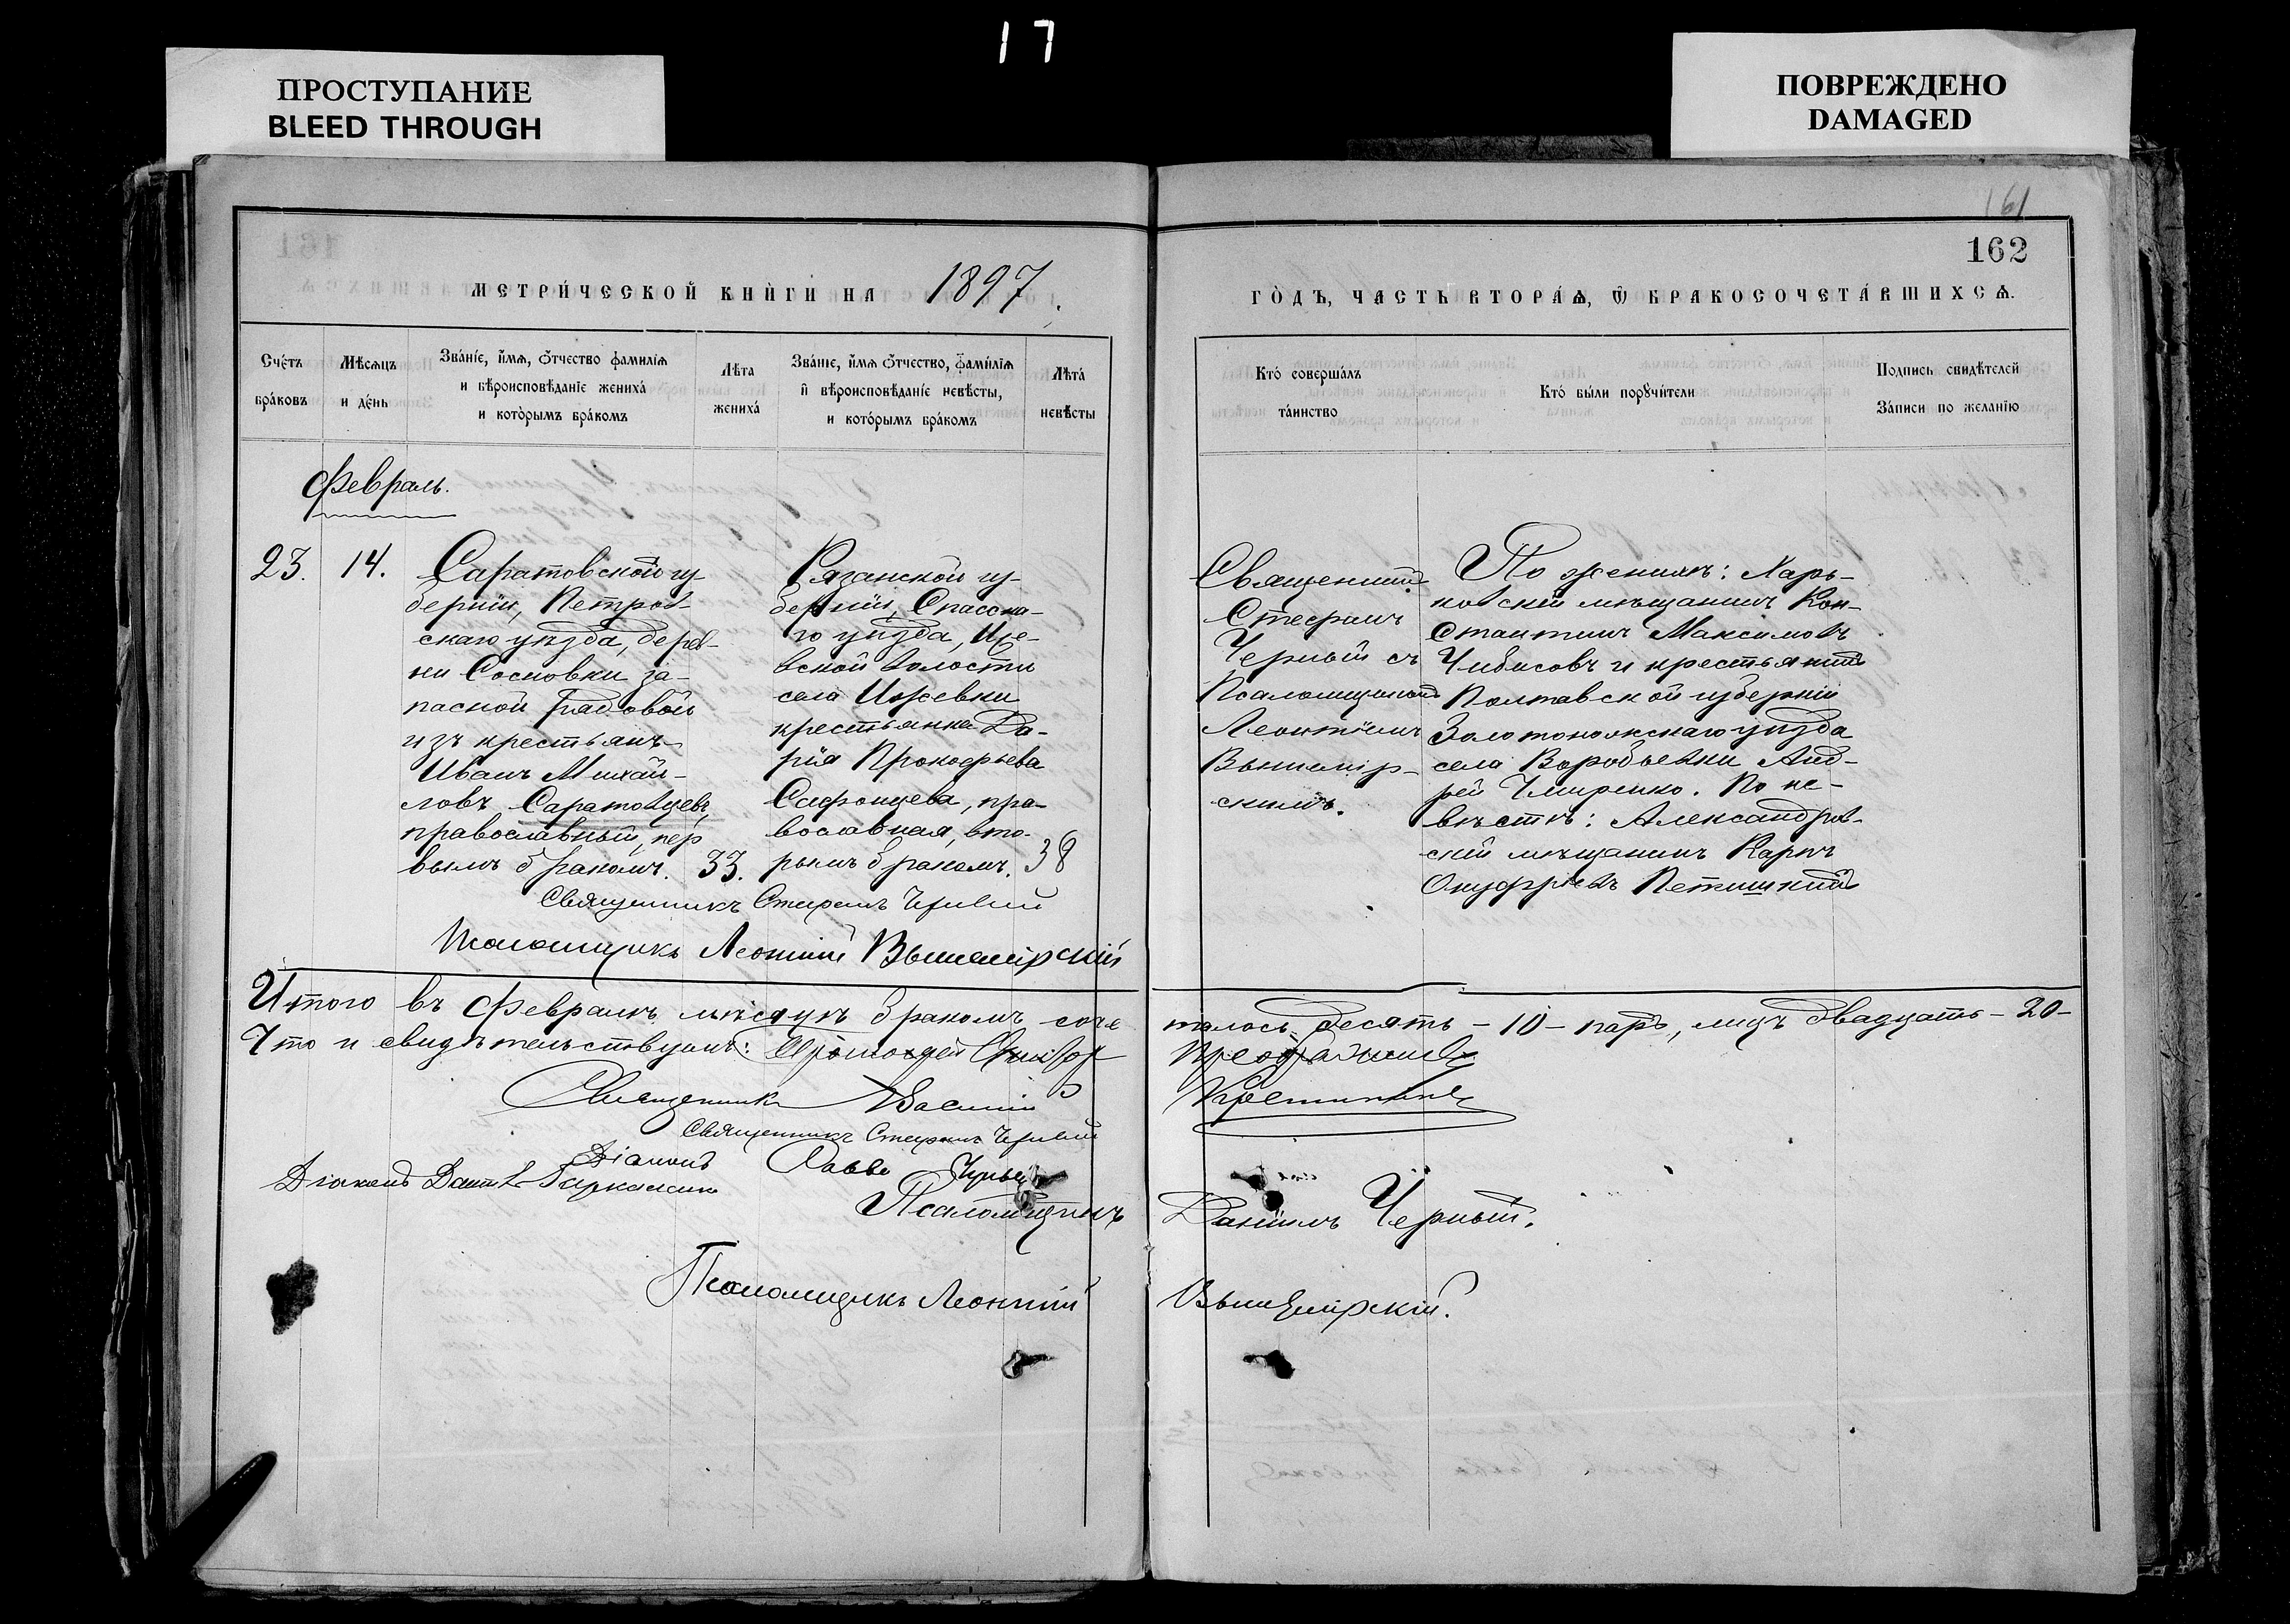 17
ПРОСТУПАНИЕ
BLEED THROUGH
ПОВРЕЖДЕНО
DAMAGED
161
162
МЕТРИ́ЧЕСКОЙ КНЍГИ НА 1897
ГО̀ДЪ, ЧАСТЬ ВТОРА́Ѧ, Ѿ БРАКОСОЧЕТА́ВШИХСѦ.
Сче́тъ бра́ковъ
Мѣ́сѧцъ и де́нь
Зва́нїе, и́мѧ, ѻ́тчество фами́лїѧ
и вѣроисповѣ́данїе жениха́
и кото́рымъ бра́комъ
Лѣ́та жениха́
Зва́нїе, и́мѧ ѻ́тчество, фами́лїѧ
и҆ вѣроисповѣ́данїе невѣ́сты,
и кото́рымъ бра́комъ
Лѣ́та́ невѣ́сты
Кто́ соверша́лъ
та́инство
Кто́ бы́ли порꙋчи́тели
По́дпись свидѣ́телей
За́писи по жела́нїю
Февраль.
23.
14.
Саратовской гу-
берніи, Петров-
скаго уѣзда, дерев-
ни Сосновки за-
пасной рядовой
изъ крестьянъ
Иванъ Михай-
ловъ Саратовцевъ,
православный, пер
вымъ бракомъ.
33.
Рязанской гу-
берніи, Спасска-
го уѣзда, Иже-
вской волости
села Ижевки
крестьянка Да-
рія Прокофьева
Сафонцева, пра-
вославная, вто-
рымъ бракомъ.
38
Священникъ
Стефанъ
Черный съ
Псаломщикомъ
Леонтіемъ
Вышемір-
скимъ.
По женихѣ: Харь-
ковскій мѣщанинъ Кон-
стантинъ Максимовъ
Чибисовъ и крестьянинъ
Полтавской губерніи
Золотоношскаго уѣзда
села Воробьевки Анд-
рей Чмиренко. По не-
вѣстѣ: Александров-
скій мѣщанинъ Карпъ
Онуфріевъ
Священникъ Стефанъ Черный
Псаломщикъ Леонтій Вышемірскій
Итого въ Февралѣ мѣсяцѣ бракомъ соче
талось десять - 10 - паръ, лицъ двадцать - 20 -
Что и свидѣтельствуемъ: Протоіерей
Священникъ Василій
Священникъ Стефанъ Черный
Діаконъ Савва
Діаконъ
Псаломщикъ Даніилъ Черный.
Псаломщикъ Леонтій Вышемірскій.